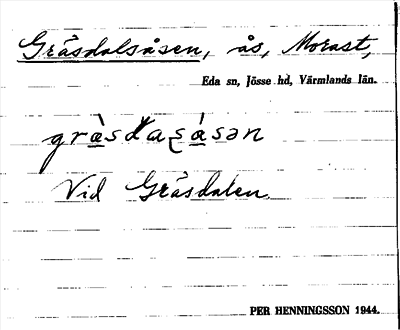 Gråsdalsåsen, ås, Morast,
Eda sn, Jösse hd, Värmlands län.
gràsdaʂásən
Vid Gråsdalen
PER HENNINGSSON 1944.